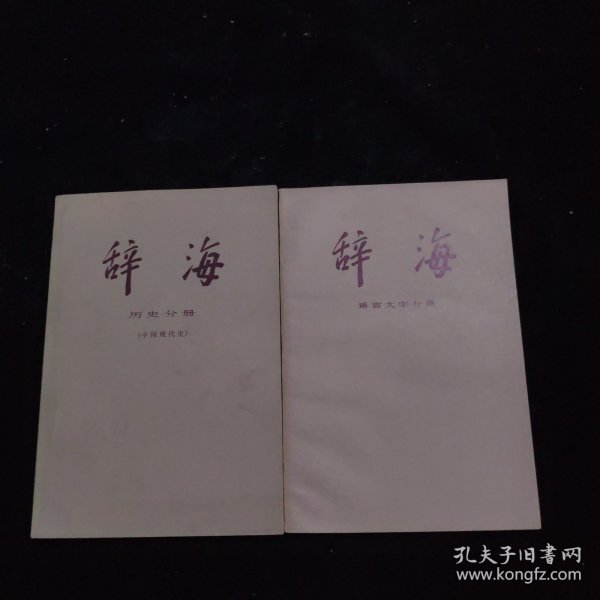 辞海
历史分册
(中国现代史)
辞海
语言文字分册
孔夫子旧书网
www.kongfz.com